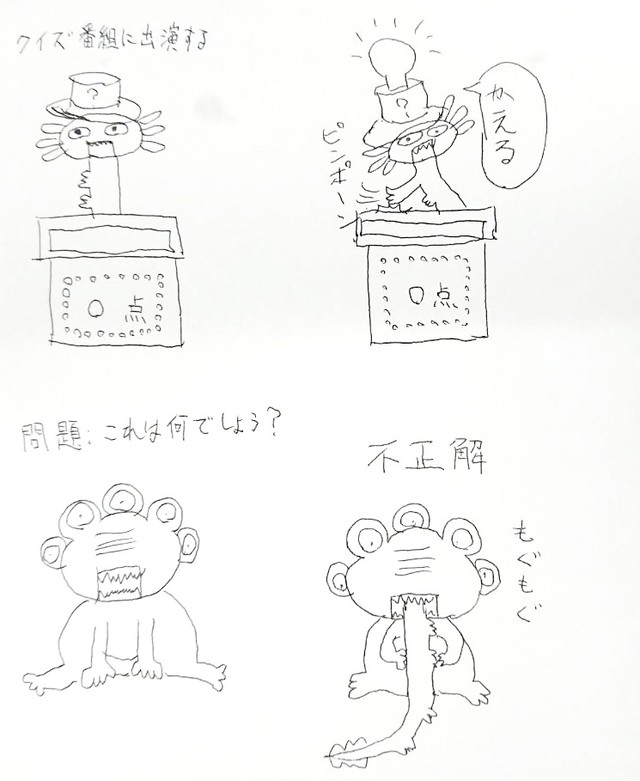 クイズ番組に出演する
?
0点
?
ピンポーン
かえる
0点
問題:これは何でしょう?
不正解
もぐもぐ